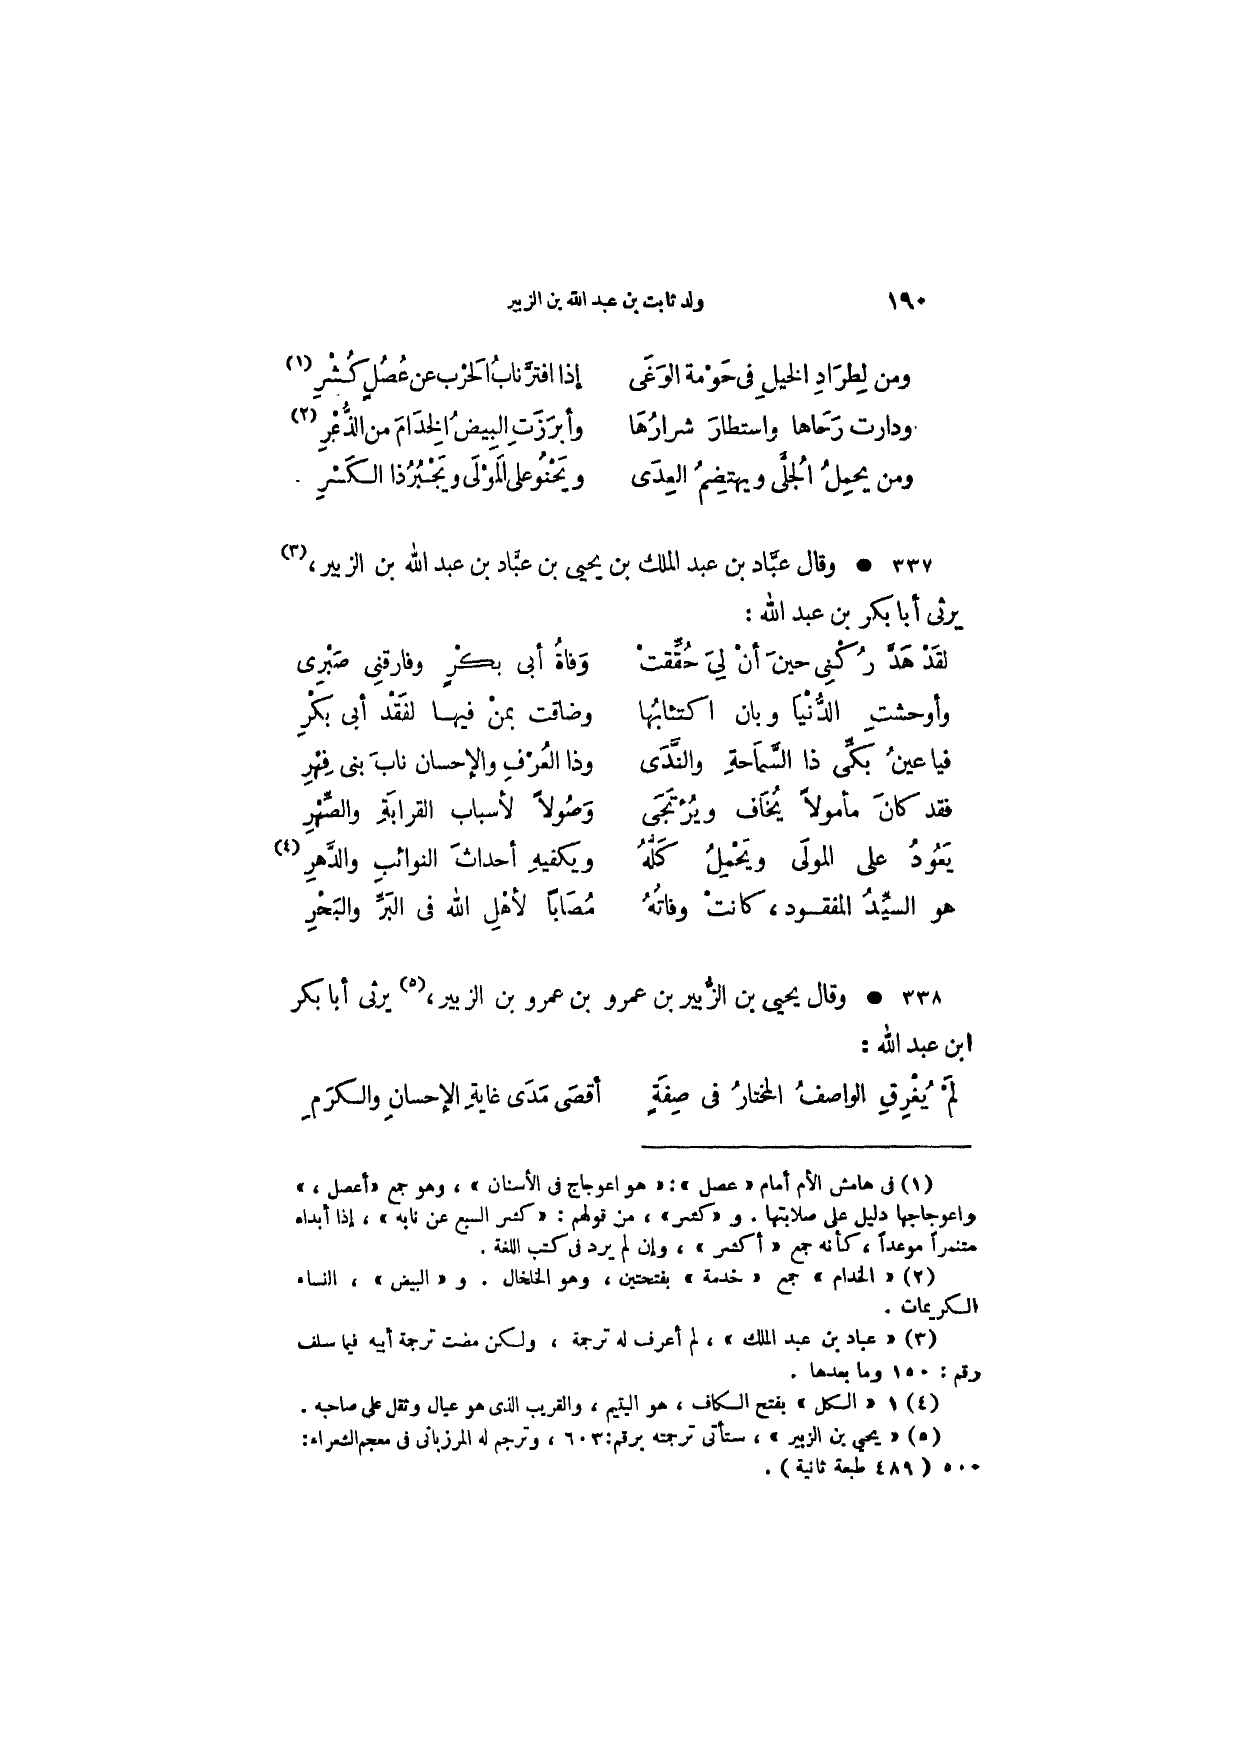 ١٩٠ ولد ثابت بن عبد الله بن الزبير
ومن لِطرَادِ الخيلِ فى حَوْمة الوَغَى إذا افترَّ نابُ الحَرْب عن عُصُلٍ كُشْرِ (١)
ودارت رَحَاها واستطارَ شرارُهَا وأبرَزَتِ البِيضُ الخِدَامَ من الذُّعْرِ (٢)
ومن يحمِلُ الجُلَّى ويهتضِمُ العِدَى ويَحْنُو على المَوْلَى ويَجْبُرُ ذا الكَسْرِ .
٣٣٧ • وقال عبَّاد بن عبد الملك بن يحيى بن عبَّاد بن عبد الله بن الزبير، (٣)
يرثى أبا بكر بن عبد الله :
لقَدْ هَدَّ رُكْنِى حينَ أنْ لِىَ حُقِّقتْ وَفاةُ أبى بكْرٍ وفارقنِى صَبْرِى
وأوحشتِ الدُّنْيَا وبان اكتئابُها وضاقت بمنْ فيها لفَقْد أبى بَكْرِ
فيا عينُ بَكِّى ذا السَّمَاحةِ والنَّدَى وذا العُرْفِ والإحسان نابَ بنى فِهْرِ
فقد كانَ مأمولاً يُخَاف ويُرْتَجَى وَصُولاً لأسباب القرابَةِ والصِّهْرِ
يَعُودُ على المولَى ويَحْمِلُ كَلَّهُ ويكفيهِ أحداثَ النوائبِ والدَّهرِ (٤)
هو السيِّدُ المفقود، كانتْ وفاتُهُ مُصَاباً لأهْلِ الله فى البَرِّ والبَحْرِ
٣٣٨ • وقال يحيى بن الزُّبير بن عمرو بن عمرو بن الزبير، (٥) يرثى أبا بكر
ابن عبد الله :
لَمْ يُغْرِقِ الواصفُ المختارُ فى صِفَةٍ أقصَى مَدَى غايةِ الإحسانِ والكرَمِ
(١) فى هامش الأم أمام « عصل »: « هو اعوجاج فى الأسنان » ، وهو جمع «أعصل ، »
واعوجاجها دليل على صلابتها . و «كشر» ، من قولهم : « كشر السبع عن نابه » ، إذا أبداه
متنمراً موعداً ، كأنه جمع « أكشر » ، وإن لم يرد فى كتب اللغة .
(٢) « الخدام » جمع « خدمة » بفتحتين ، وهو الخلخال . و « البيض » ، النساء
الكريمات .
(٣) « عباد بن عبد الملك » ، لم أعرف له ترجمة ، ولكن مضت ترجمة أبيه فيما سلف
رقم : ١٥٠ وما بعدها .
(٤) ١ « الكل » بفتح الكاف ، هو اليتيم ، والقريب الذى هو عيال وثقل على صاحبه .
(٥) « يحيى بن الزبير » ، ستأتى ترجمته برقم: ٦٠٣ ، وترجم له المرزبانى فى معجم الشعراء:
٥٠٠ ( ٤٨٩ طبعة ثانية ) .